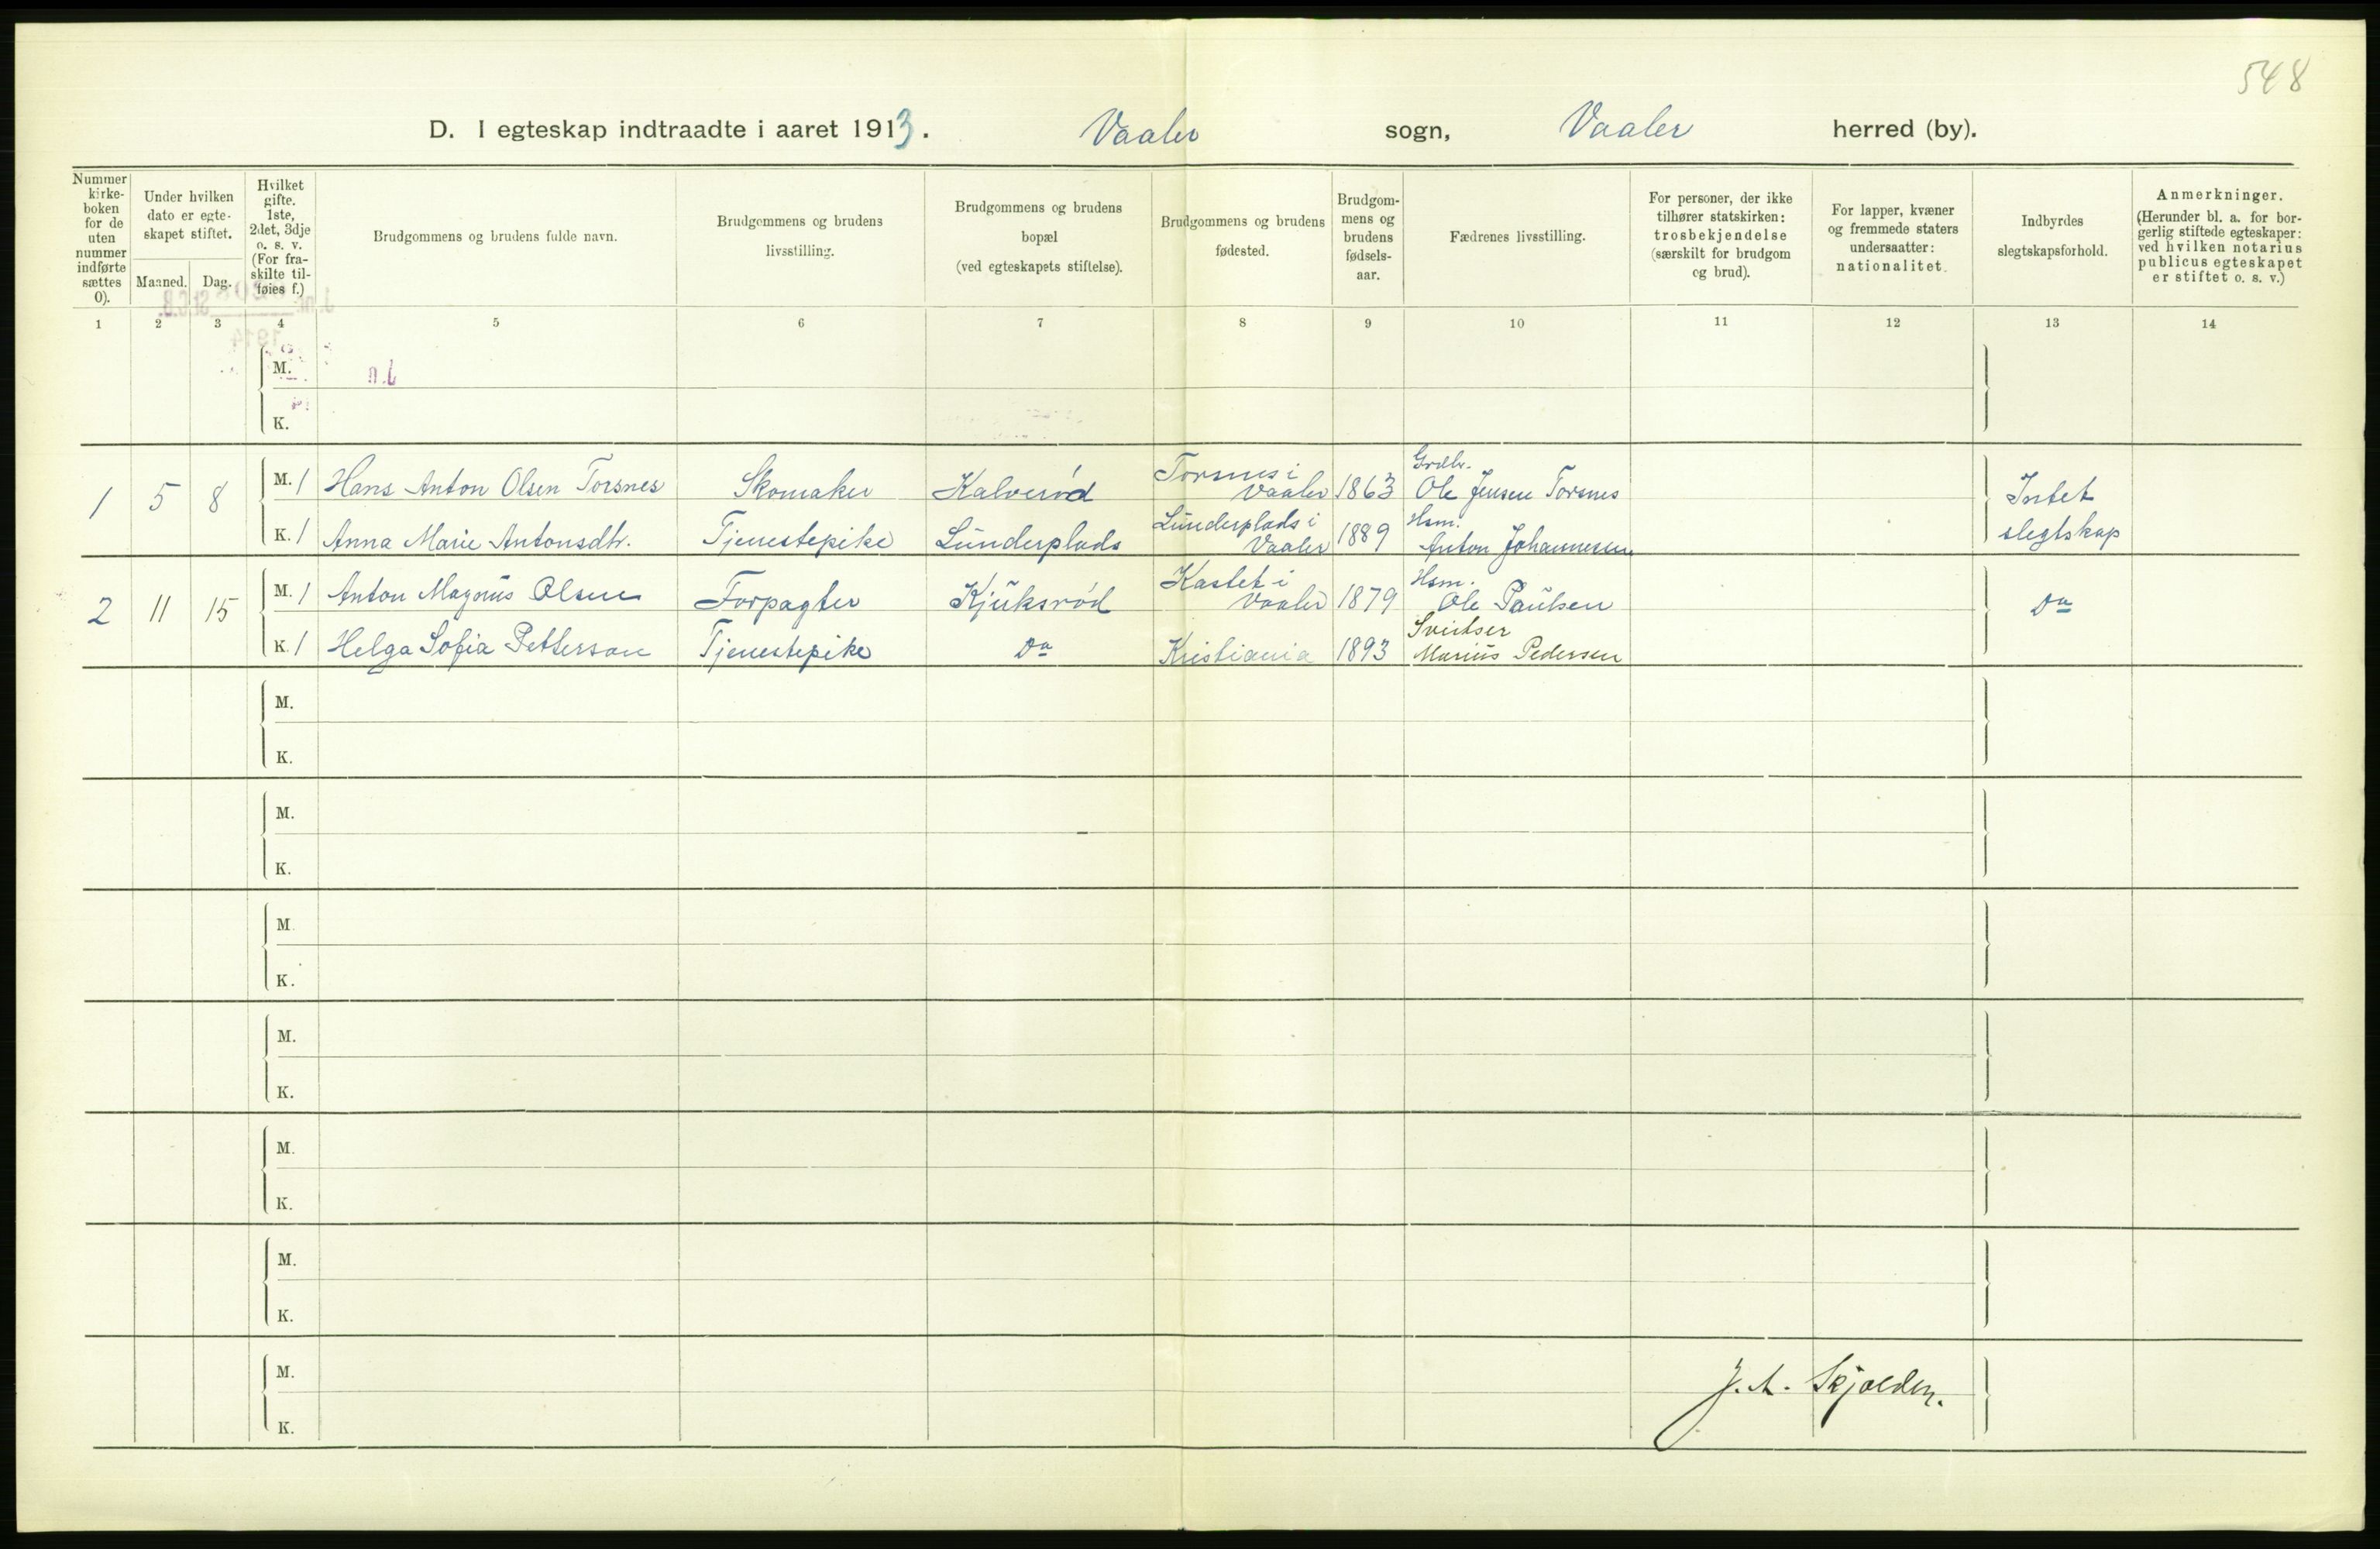 548
D. I egteskap indtraadte i aaret 1913. Vaaler sogn, Vaaler herred (by).
Nummer kirke- boken for de uten nummer indførte sættes 0).
Under hvilken dato er egte- skapet stiftet.
Maaned. Dag.
Hvilket gifte. 1ste, 2det, 3dje o. s. v. (For fra- skilte til- føies f.)
Brudgommens og brudens fulde navn.
Brudgommens og brudens livsstilling.
Brudgommens og brudens bopæl (ved egteskapets stiftelse).
Brudgommens og brudens fødested.
Brudgom- mens og brudens fødsels- aar.
Fædrenes livsstilling.
For personer, der ikke tilhører statskirken: trosbekjendelse (særskilt for brudgom og brud).
For lapper, kvæner og fremmede staters undersaatter: nationalitet.
Indbyrdes slegtskapsforhold.
Anmerkninger. (Herunder bl. a. for bor- gerlig stiftede egteskaper: ved hvilken notarius publicus egteskapet er stiftet o. s. v.)
1 2 3 4 5 6 7 8 9 10 11 12 13 14
M.
K.
1 5 8 M. 1 Hans Anton Olsen Torsnes Skomaker Kalverød Torsnes i Vaaler 1863 Grdbr. Ole Jensen Torsnes Intet slegtskap
K. 1 Anna Marie Antonsdtr. Tjenestepike Lunderplads Lunderplads i Vaaler 1889 Hsm. Anton Johannesen
2 11 15 M. 1 Anton Magnus Olsen Forpagter Kjuksrød Kastet i Vaaler 1879 Hsm. Ole Paulsen Do
K. 1 Helga Sofia Petterson Tjenestepike Do Kristiania 1893 Sveitser Marius Pedersen
M.
K.
M.
K.
M.
K.
M.
K.
M.
K.
M.
K.
M.
K.
J. A. Skjolden.